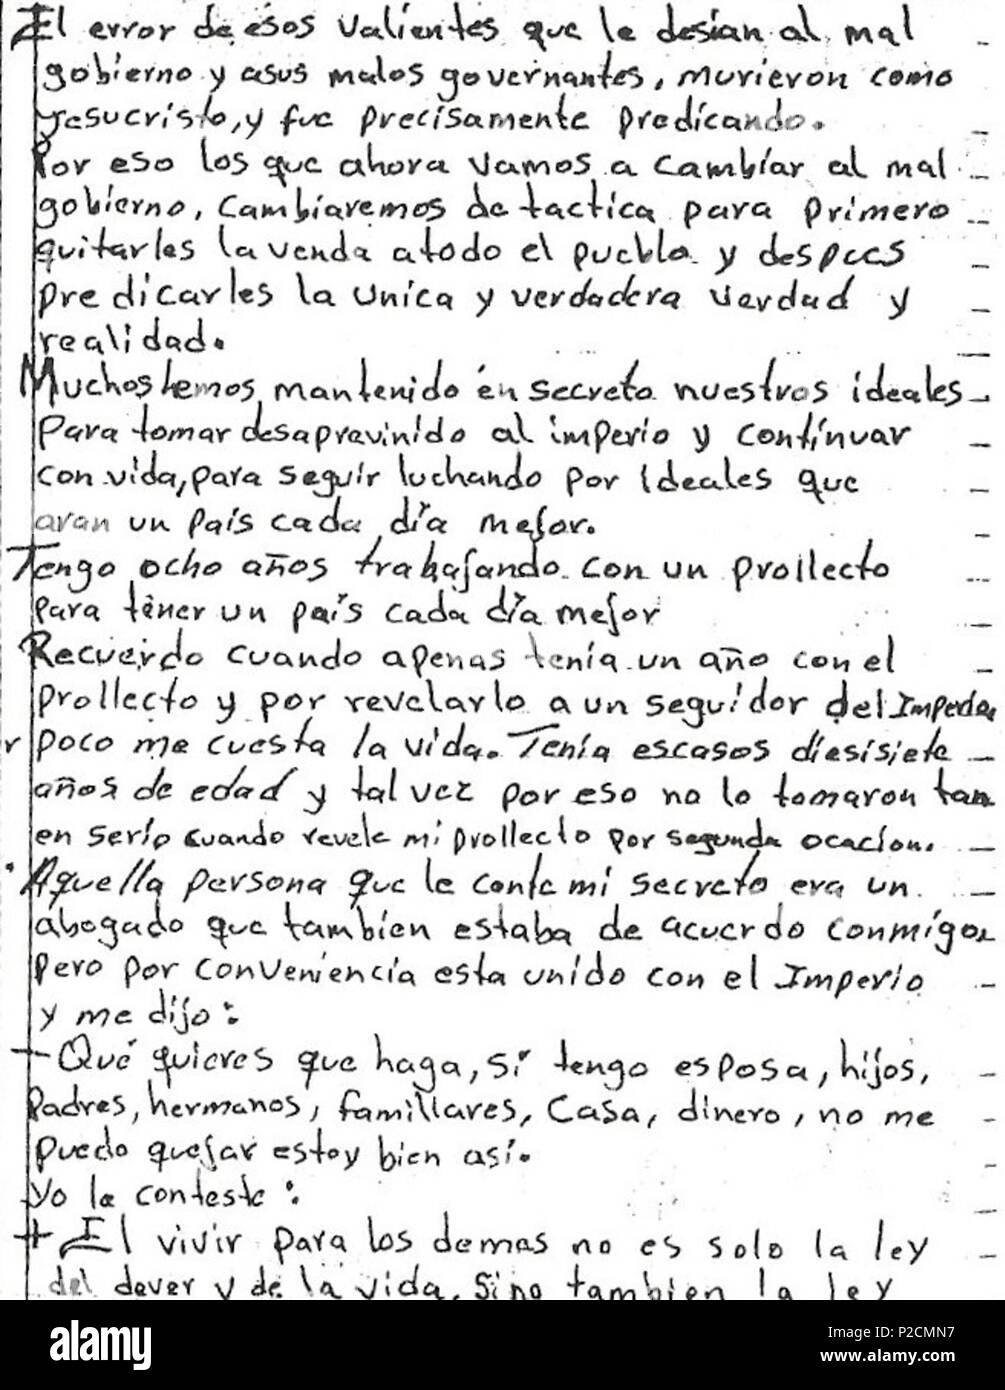 El error de esos valientes que le desian al mal
gobierno y asus malos governantes, murieron como
Jesucristo, y fue precisamente predicando.
Por eso los que ahora vamos a cambiar al mal
gobierno, cambiaremos de tactica para primero
quitarles la venda a todo el pueblo y despues
predicarles la unica y verdadera verdad y
realidad.
Muchos hemos mantenido en secreto nuestros ideales
para tomar desaprevinido al imperio y continuar
con vida, para seguir luchando por ideales que
aran un país cada día mejor.
Tengo ocho años trabajando con un prollecto
para tener un país cada día mejor
Recuerdo cuando apenas tenía un año con el
prollecto y por revelarlo a un seguidor del
r poco me cuesta la vida. Tenía escasos diesisiete
años de edad y tal vez por eso no lo tomaron tan
en serio cuando revele mi prollecto por segunda ocacion.
Aquella persona que le conte mi secreto era un
abogado que tambien estaba de acuerdo conmigo
pero por conveniencia esta unido con el Imperio
y me dijo:
- Qué quieres que haga, si tengo esposa, hijos,
padres, hermanos, famillares, casa, dinero, no me
puedo quejar estoy bien así.
Yo le conteste:
+ El vivir para los demas no es solo la ley
del dever y de la vida, sino tambien la ley
alamy
Image ID: P2CMN7
www.alamy.com